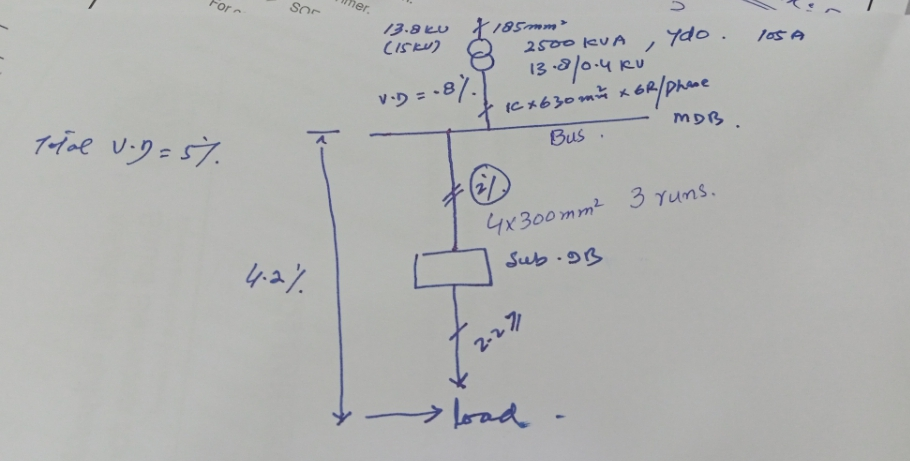 For
SOF
mer.
13.8 KV
(15 KV)
185mm²
2500 KVA , Ydo . 105 A
13.8/0.4 KV
V.D = .8%
1C x 630 mm² x 6R/phase
MDB .
Bus .
Total V.D = 5%.
2%
4x300mm² 3 runs.
Sub . DB
4.2%
2.2%
load .